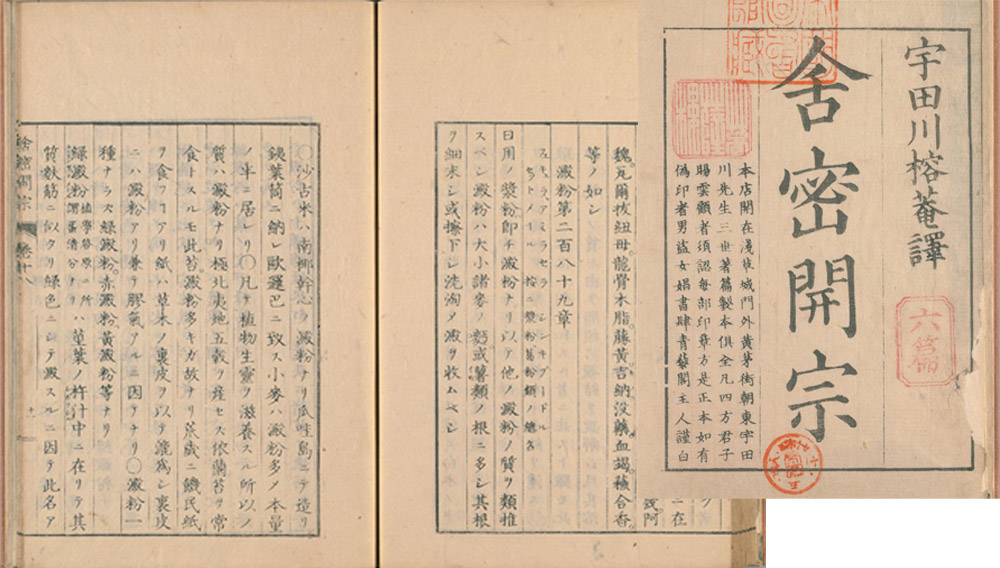 宇田川榕菴譯
舎密開宗
本店開在淺草城門外黄茅街朝東宇田
川先生三世著篇製本俱全凡四方君子
賜雲顧者須認每部印章方是正本如有
偽印者男盗女娼書肆青藜閣主人謹白
ニ在
或阿
魏瓦爾抜紐母龍骨木脂藤黃吉納没藥血竭蘓合香
等ノ如シ
澱粉第二百八十九章
日用ノ漿粉即チ澱粉ナリ以テ他ノ澱粉ノ質ヲ類推
スベシ澱粉ハ大小諸麥ノ麪或薯類ノ根ニ多シ其根
ヲ細末シ或擦下シ洗淘メ澱ヲ收ムベシ
○沙古米ハ南椰幹心ノ澱粉ナリ瓜哇島ニテ造リ
銕葉筒ニ納レ歐邏巴ニ致ス小麥ハ澱粉多メ本量
ノ半ニ居レリ○凡テ植物生靈ヲ滋養スル所以ノ
質ハ澱粉ナリ極北夷地五穀ヲ産セス依蘭苔ヲ常
食トスルモ此苔澱粉多キガ故ナリ荒歳ニ饑民紙
ヲ食フヿアリ紙ハ草木ノ裏皮ヲ以テ漉為シ裏皮
ニハ澱粉アリ兼テ膠氣アルニ因テナリ○澱粉一
種ナラス緑澱粉赤澱粉黃澱粉等ナリ
緑澱粉植學啓原ニ所謂葉清分ナリハ菫菜ノ杵汁中ニ在リテ其
質麩筋ニ似タリ緑色ニシテ澱スルニ因テ此名ア
舍密開宗 卷十八
十一